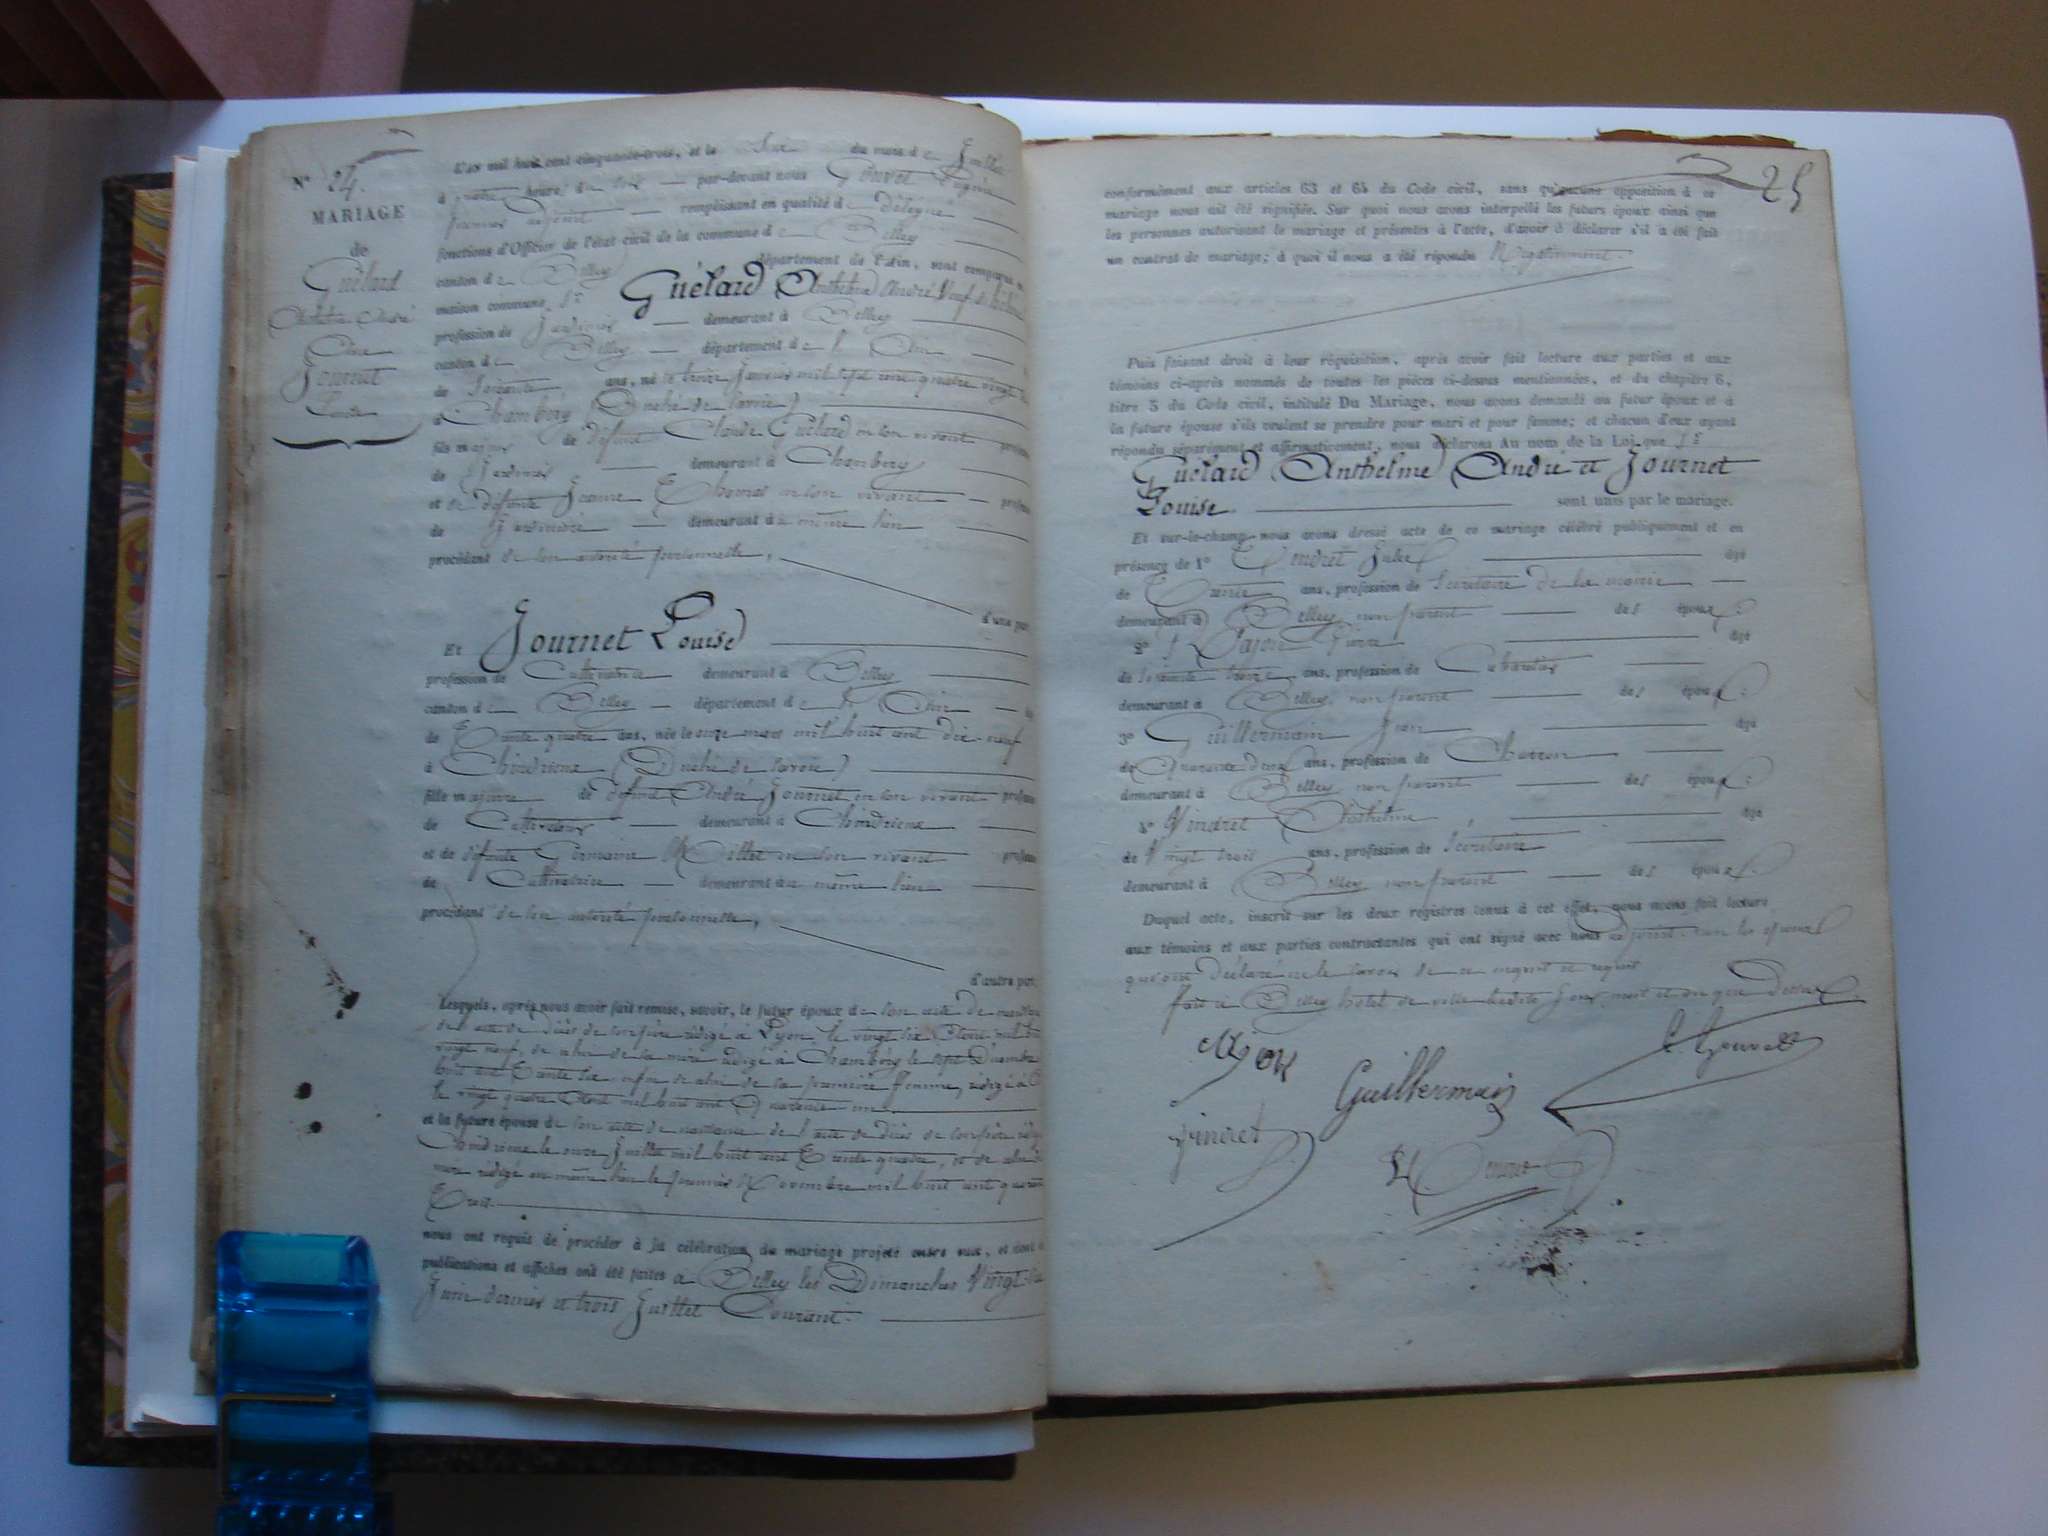 N° 24.
MARIAGE
de
Guélard
Anthelme André
Et
Journet
Louise
L'an mil huit cent cinquante-trois, et le six du mois de Juillet
à quatre heures du soir par-devant nous Gouvet
premier adjoint remplissant en qualité de délégué
fonctions d'Officier de l'état civil de la commune de Belley
canton de Belley département de l'Ain, sont comparus en
maison commune, Sr Guélard Anthelme André Veuf de
profession de Jardinier demeurant à Belley
canton de Belley département de l'Ain
de Soixante ans, né le trois Janvier mil sept cent quatre vingt
à Chambéry (Duché de Savoie)
fils majeur de défunt Claude Guélard en son vivant
de Jardinier demeurant à Chambéry
et de défunte Jeanne Thomas en son vivant
de Jardinière demeurant au même lieu
procédant de son autorité personnelle,
d'une part
Et Journet Louise
profession de Cultivatrice demeurant à Belley
canton de Belley département de l'Ain
de Trente quatre ans, née le onze mars mil huit cent dix-neuf
à Chindrieux (Duché de Savoie)
fille majeure de défunt André Journet en son vivant
de Cultivateur demeurant à Chindrieux
et de défunte Germaine Millet en son vivant
de Cultivatrice demeurant au même lieu
procédant de son autorité personnelle,
d'autre part
Lesquels, après nous avoir fait remise, savoir, le futur époux de son acte de
de l'acte de décès de son père rédigé à Lyon, le vingt six
vingt neuf, de celui de sa mère rédigé à Chambéry le sept Décembre
huit cent trente six, enfin de celui de sa première femme, rédigé à
le vingt quatre Août mil huit cent quarante un
et la future épouse de son acte de naissance de l'acte de décès de son père
Chindrieux le onze Juillet mil huit cent trente quatre, et de celui de
mère rédigé en même lieu le premier Novembre mil huit cent quarante
Trois.
nous ont requis de procéder à la célébration du mariage projeté entre eux, et dont
publications et affiches ont été faites à Belley les Dimanches Vingt
Juin dernier et trois Juillet Courant.
25
conformément aux articles 63 et 64 du Code civil, sans qu'aucune opposition à ce
mariage nous ait été signifiée. Sur quoi nous avons interpellé les futurs époux ainsi que
les personnes autorisant le mariage et présentes à l'acte, d'avoir à déclarer s'il a été fait
un contrat de mariage; à quoi il nous a été répondu Négativement.
Puis faisant droit à leur réquisition, après avoir fait lecture aux parties et aux
témoins ci-après nommés de toutes les pièces ci-dessus mentionnées, et du chapitre 6,
titre 5 du Code civil, intitulé Du Mariage, nous avons demandé au futur époux et à
la future épouse s'ils veulent se prendre pour mari et pour femme; et chacun d'eux ayant
répondu séparément et affirmativement, nous déclarons Au nom de la Loi que Sr
Guélard Anthelme André et Journet
Louise. sont unis par le mariage.
Et sur-le-champ nous avons dressé acte de ce mariage célébré publiquement et en
présence de 1° Jules âgé
de ans, profession de Secrétaire de la mairie
demeurant à Belley, non parent des époux;
2° Sr Pajon Pierre âgé
de Soixante ans, profession de Cabaretier
demeurant à Belley, non parent des époux;
3° Guillermain Jean âgé
de Quarante deux ans, profession de Charron
demeurant à Belley, non parent des époux;
4° Vindret Anthelme âgé
de Vingt trois ans, profession de Secrétaire
demeurant à Belley non parent des époux.
Duquel acte, inscrit sur les deux registres tenus à cet effet, nous avons fait lecture
aux témoins et aux parties contractantes qui ont signé avec nous adjoint, non les époux
qui ont déclaré ne le savoir de ce enquis et requis
fait à Belley hotel de ville lesdits jour, mois et an que dessus.
Guillermain
Vindret